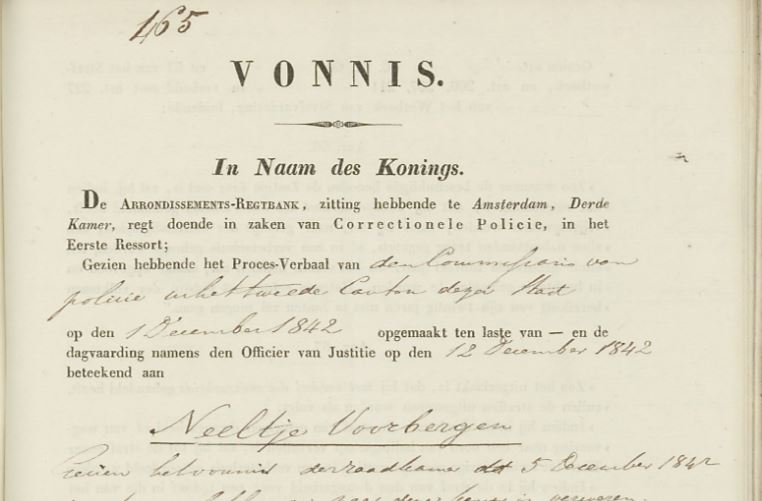 465
VONNIS.
In Naam des Konings.
De Arrondissements-Regtbank, zitting hebbende te Amsterdam, Derde
Kamer, regt doende in zaken van Correctionele Policie, in het
Eerste Ressort;
Gezien hebbende het Proces-Verbaal van den Commissaris van
policie in het tweede Canton dezer Stad
op den 1 December 1842 opgemaakt ten laste van — en de
dagvaarding namens den Officier van Justitie op den 12 December 1842
beteekend aan
Neeltje Voorbergen
Gezien het vonnis der raadkamer dd 5 December 1842